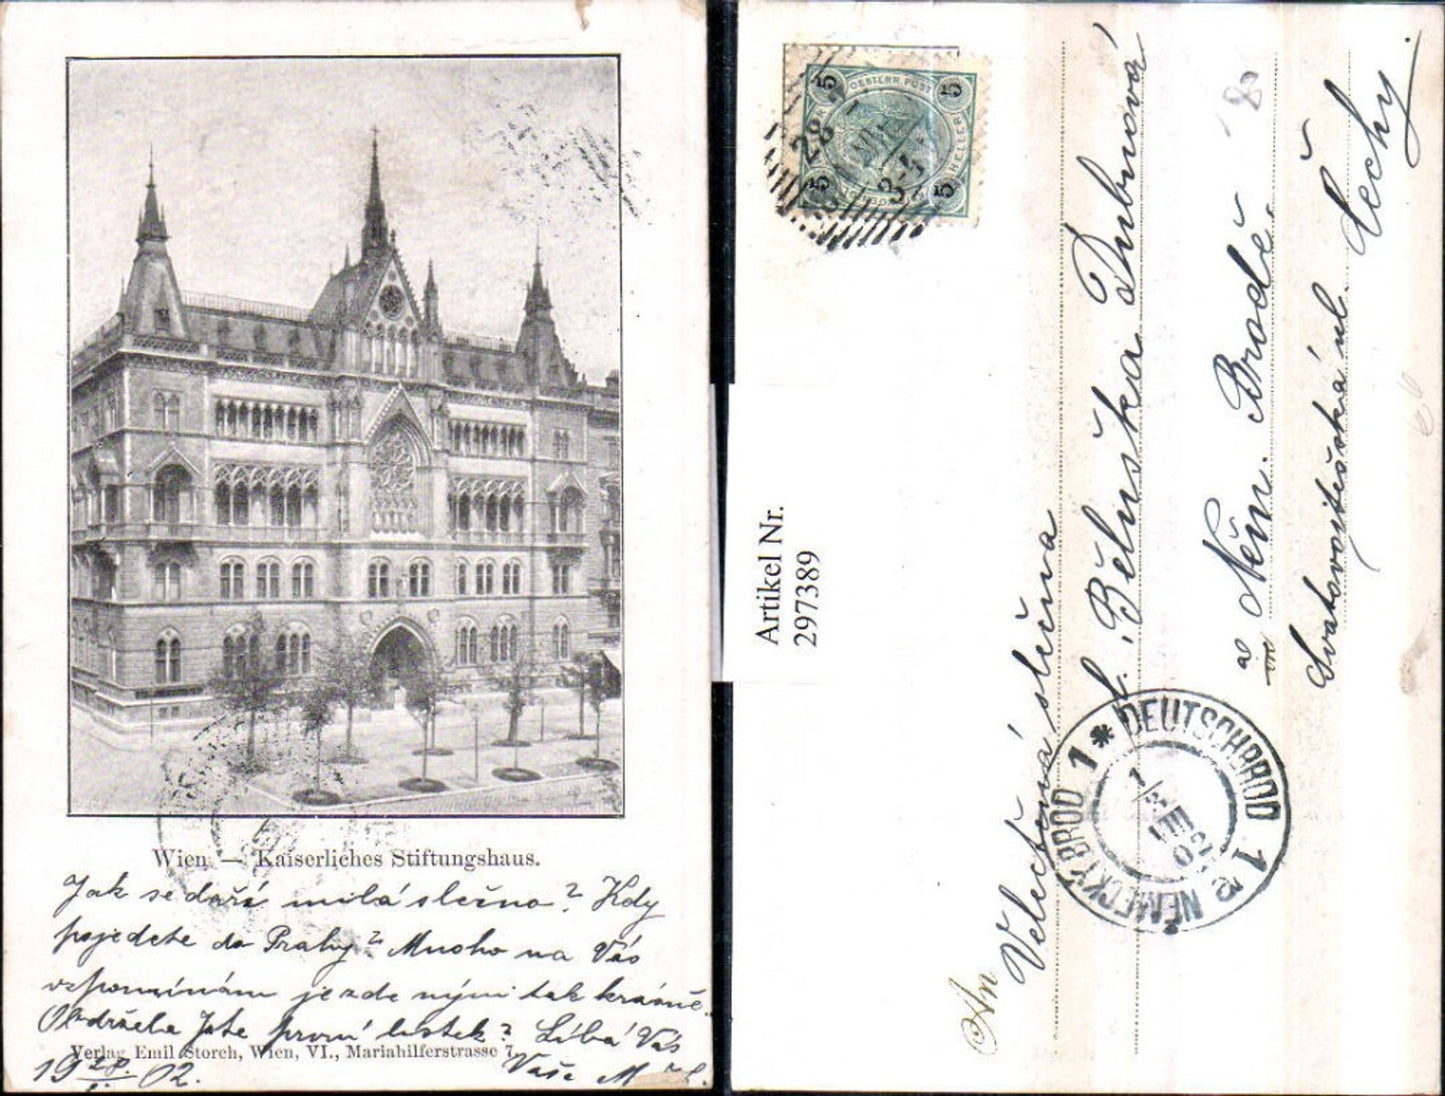 Wien — Kaiserliches Stiftungshaus.
Jak se daří milá slečno? Kdy
pojedete do Prahy? Mnoho na Vás
vzpomínám je zde nyní tak krásně.
Obdržela jste první lístek? Líbá Vás
Verlag Emil Storch, Wien, VI., Mariahilferstrasse 7.
19 28. 02.
Vaše M
Artikel Nr.
297389
5 OESTERR. POST 5
HELLER
5 5
28
An
Velectěná slečna
Běluška Dubnová
Něm. Brodě.
Svatovojtěšská ul.
Čechy.
DEUTSCHBROD 1
NĚMECKÝ BROD 1
1/3
02